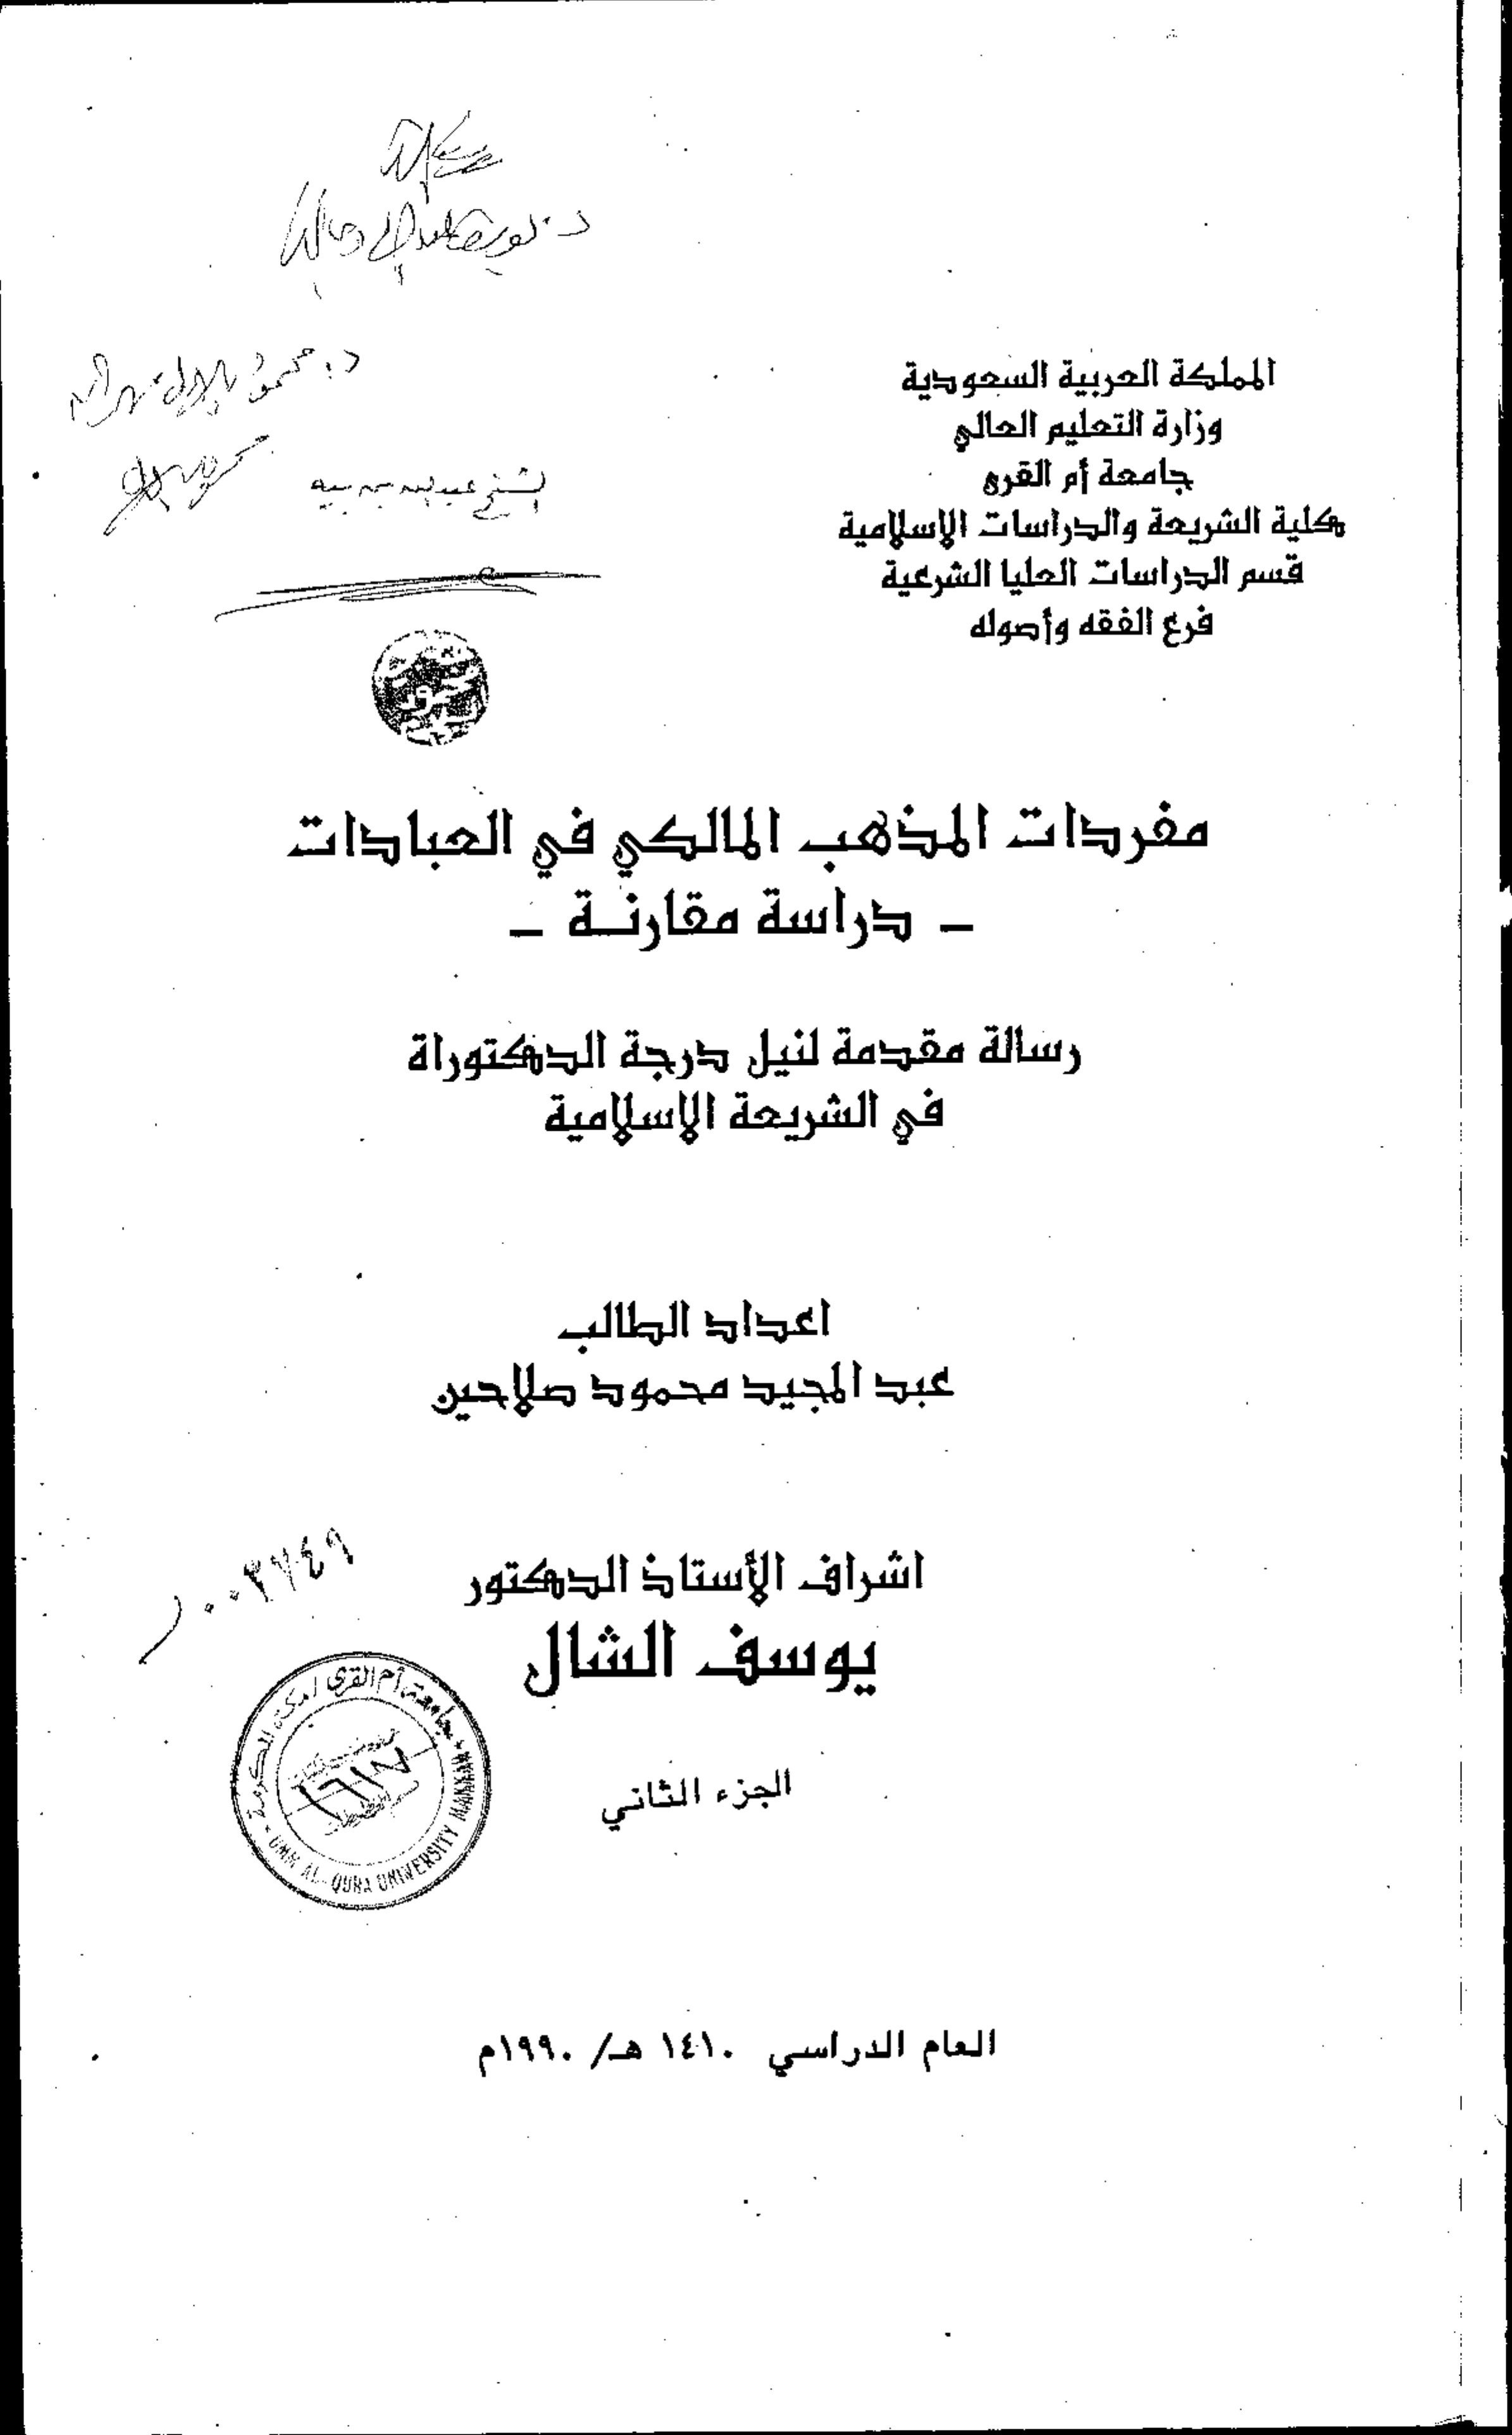 المملكة العربية السعودية
وزارة التعليم العالي
جامعة أم القرى
كلية الشريعة والدراسات الإسلامية
قسم الدراسات العليا الشرعية
فرع الفقه وأصوله
الشيخ عبدالله بن بيه
مفردات المذهب المالكي في العبادات
– دراسة مقارنـة –
رسالة مقدمة لنيل درجة الدكتوراة
في الشريعة الإسلامية
اعداد الطالب
عبد المجيد محمود صلاحين
اشراف الأستاذ الدكتور
يوسف الشال
٠٠٣٧٤٩
جامعة أم القرى / مكة المكرمة
UMM AL-QURA UNIVERSITY MAKKAH
الجزء الثاني
العام الدراسي ١٤١٠ هـ/ ١٩٩٠م